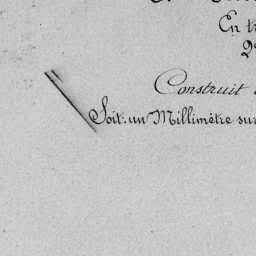 En
Construit
Soit: un Millimètre sur